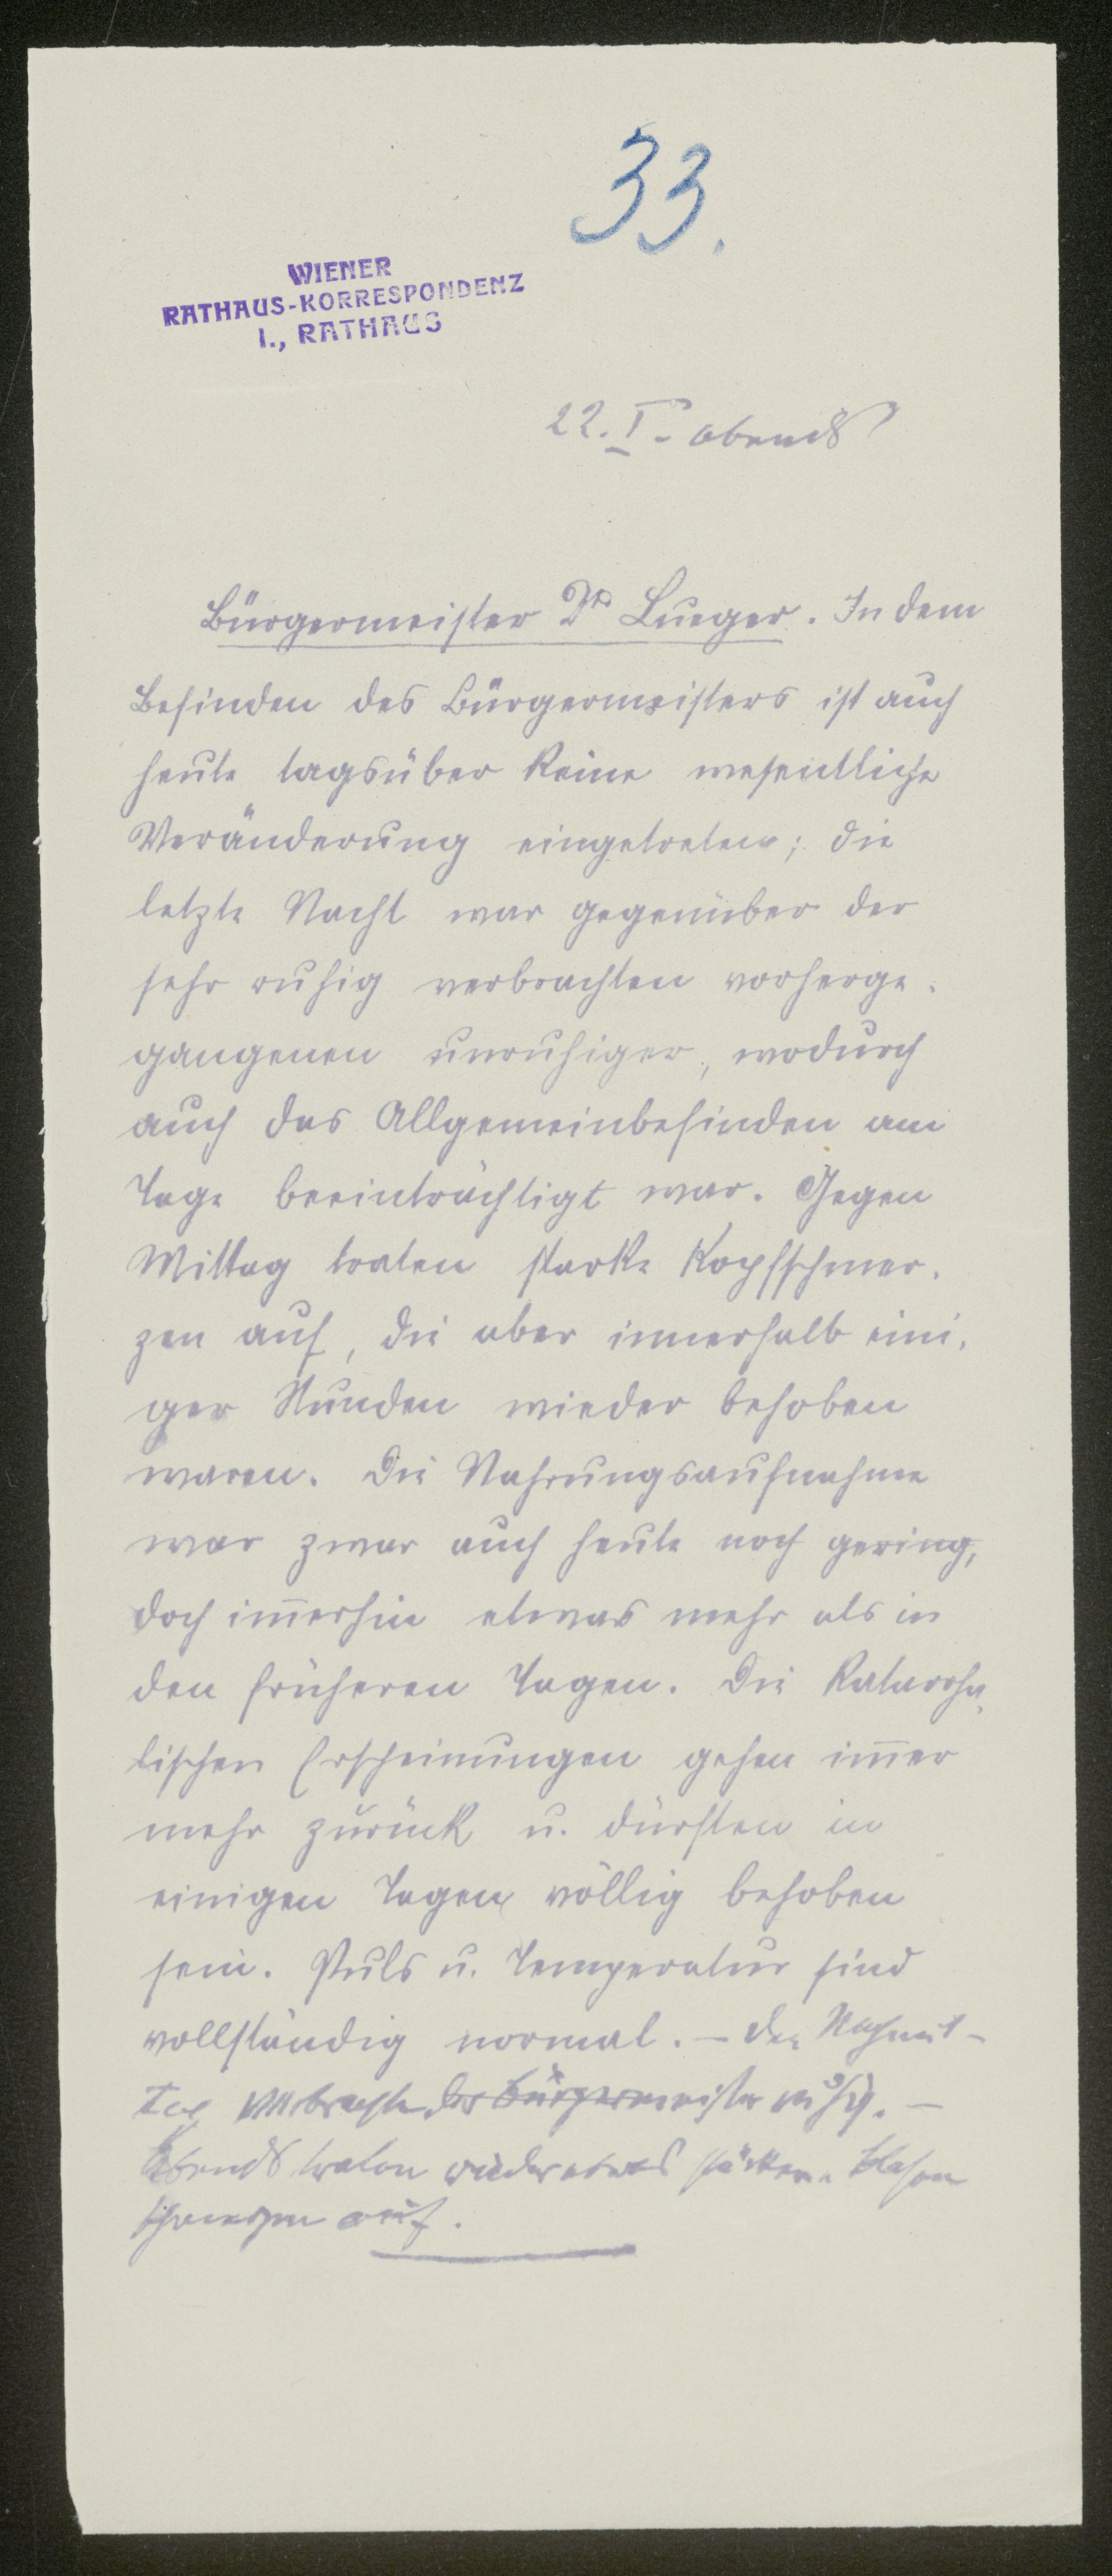 33.
WIENER
RATHAUS-KORRESPONDENZ
I., RATHAUS
22. I. abends
Bürgermeister Dr Lueger. In dem
Befinden des Bürgermeisters ist auch
heute tagsüber keine wesentliche
Veränderung eingetreten; die
letzte Nacht war gegenüber der
sehr ruhig verbrachten vorherge-
gangenen unruhiger, wodurch
auch das Allgemeinbefinden am
Tage beeinträchtigt war. Gegen
Mittag traten starke Kopfschmer-
zen auf, die aber innerhalb eini-
ger Stunden wieder behoben
waren. Die Nahrungsaufnahme
war zwar auch heute noch gering,
doch im̅erhin etwas mehr als in
den früheren Tagen. Die katarrha-
lischen Erscheinungen gehen im̅er
mehr zurück u. dürften in
einigen Tagen völlig behoben
sein. Puls u. Temperatur sind
vollständig normal. – Den Nachmit-
tag verbrachte der Bürgermeister ruhig. –
Abends traten wieder etwas stärkere Blasen
schmerzen auf.